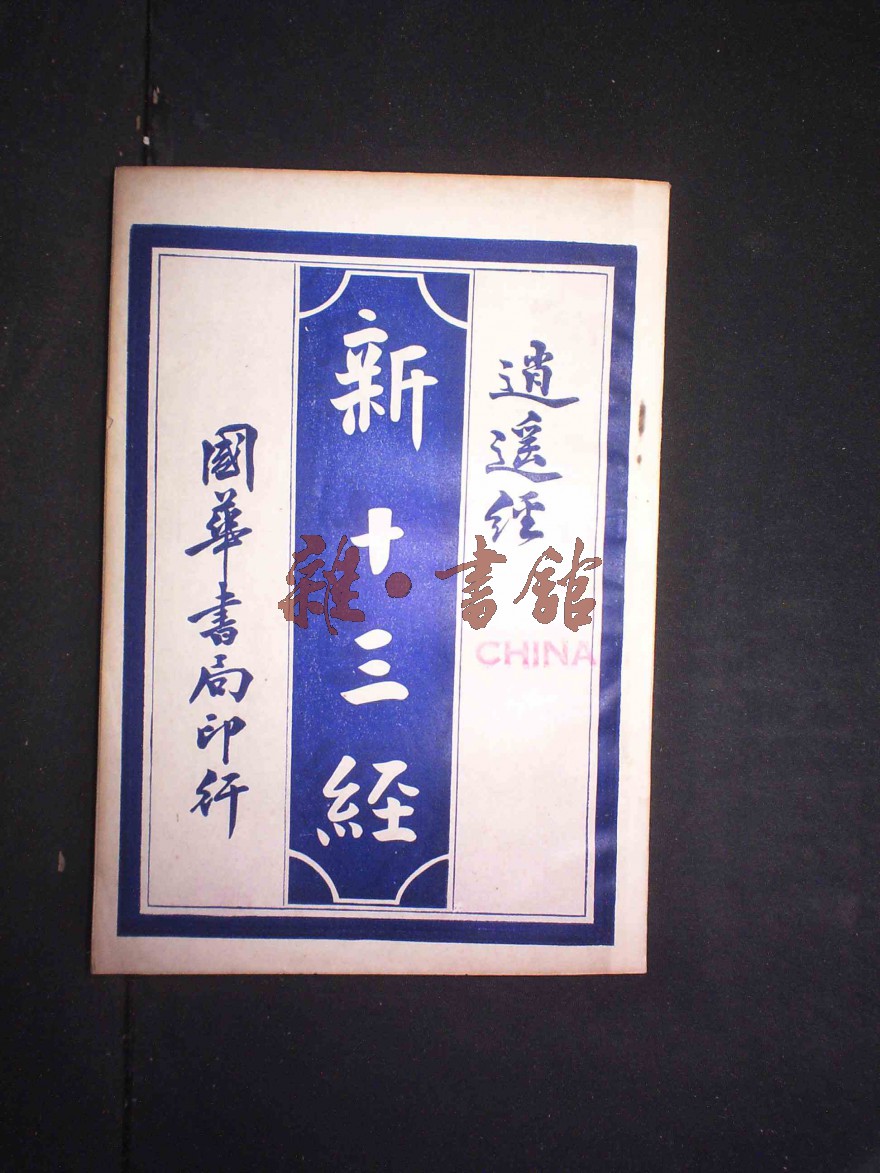 逍遥經
新十三經
國華書局印行
CHINA
雜·書館